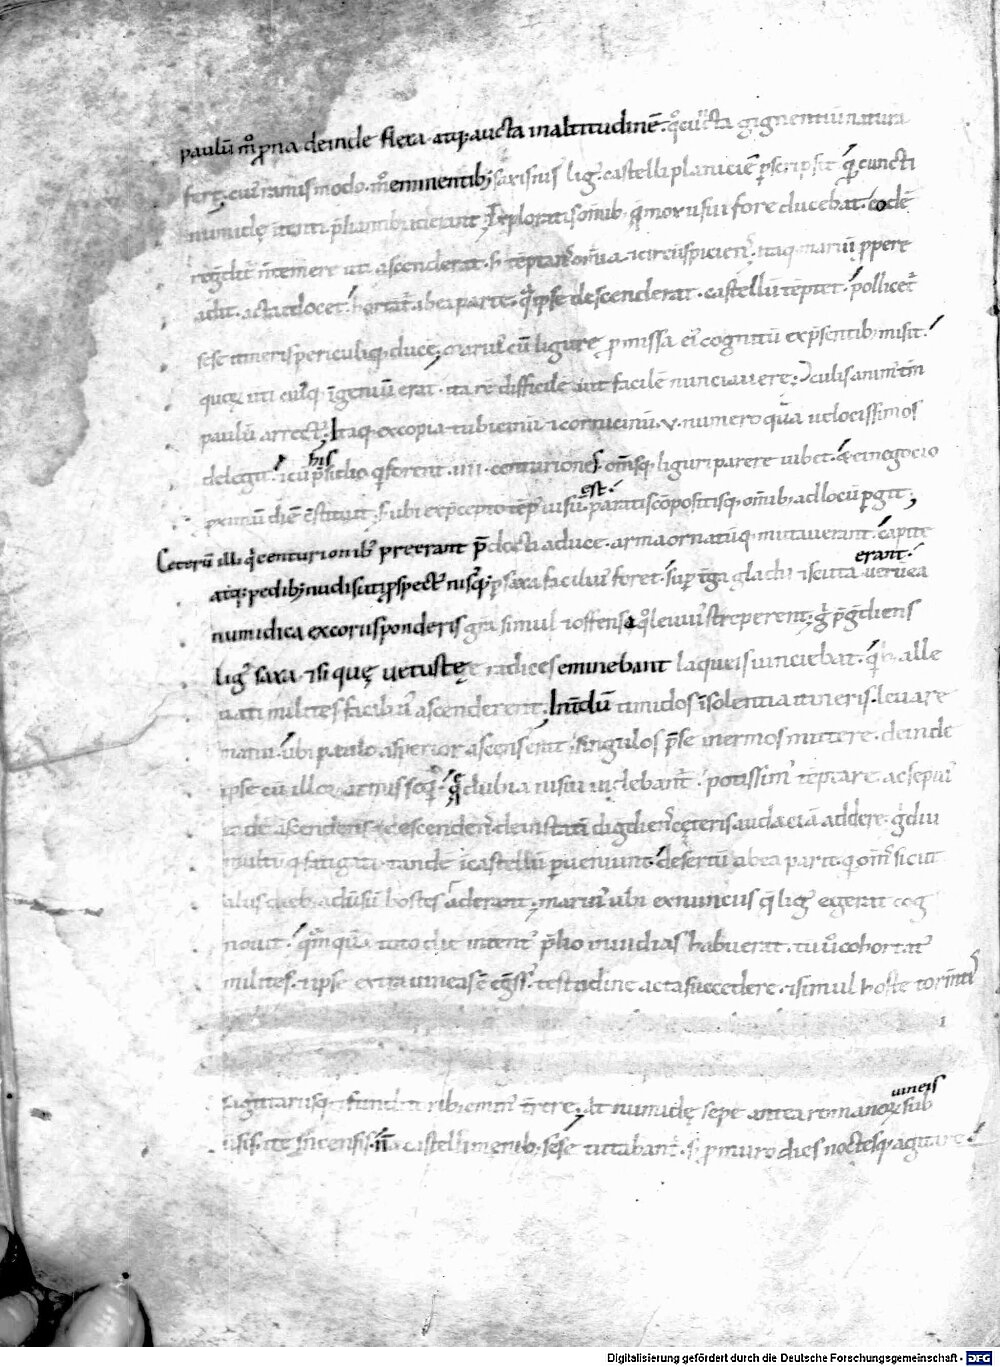 paulū m̄ p̄na deinde flexa atq; aucta inaltitudinē. q̊ cūcta gignentiū natura
fert; cuı᷒ ramis modo. m̊ eminentib; saxis nis᷒ lig᷒. castelli planiciē p̄scripsit q̄ cuncti
numidę intenti p̄liantib; aderant; Exploratis omīb; q̄ mox usui fore ducebat. eodē
regdit᷒. n̄ temere uti ascenderat. s; tēptans omīa. ⁊ circūspiciens. itaq; mariū ppere
adit. acta edocet. hortat᷒ abea parte. q̄ ipse descenderat. castellū tēptet. pollicet᷒
sese itineris periculiq; ducē; marius cū ligure p missa ei᷒ cognitū exp̄sentib; misit.
quoꝝ uti cui᷒q; īgeniū erat. ita rē difficilē aut facilē nunciauere; Ɔculis anim᷒ tm̄
paulū arrect᷒; Itaq; excopia tubicinū ⁊ cornicinū. v. numero quā uelocissimos
delegit. ⁊ cū his p̄sidio q forent. iiii. centuriones. oms̄q; liguri parere iubet. & ei negocio
pximū diē c̄stituit; S; ubi exp̄cepto tēp᷒ uisū est. paratis cōpositisq; omīb; ad locū pgit;
Ceterū illi q̄ centurionib; preerant p̄docti aduce. arma ornatūq; mutauerant. capite
atq; pedib; nudis uti pspect᷒ nisusq; p saxa facili᷒ foret. sup tga gladii ⁊ scuta erant. uerū ea
numidica excoriis ponderis gra simul ⁊ offensa q̊ leui᷒ streperent; g̊ p̄gdiens
lig᷒ saxa. ⁊ si quę uetustę radices eminebant laqueis uinciebat. q̄b; alle
uati milites facili᷒ ascenderent; Int̄dū timidos īsolentia itineris. leuare
manu. ubi paulo asperior ascens᷒ erat; singulos p̄se inermos mittere. deinde
ipse cū illoꝝ armis seq̄; q̄ dubia nisui uidebant᷒. potissim᷒ tēptare. ac sepi᷒
eadē ascendens descendens. dein statī digdiens. cęteris audaciā addere; g̊ diu
multūq; fatigati. tandē ⁊ castellū pueniunt. desertū abea parte. q̊ om̄s sicut
aliis dieb; adūsū hostes aderant; marius ubi exnunciis q̄ lig᷒ egerat cog
nouit. q̄mquā toto die intent᷒ p̄lio numidas habuerat. tū ů cohortat᷒
milites. ⁊ ipse extra uineas eg̅ss᷒. testudine acta succedere. ⁊ simul hostē torm̄tis
sagittariisq; ⁊ funditorib; emin᷒ t̄rere; At numidę sepe antea romanoꝝ uineis sub
uersis. ite incensis. n̄ castelli menib; sese tutabant᷒. s; p muro dies noctesq; agitare.
Digitalisierung gefördert durch die Deutsche Forschungsgemeinschaft - DFG